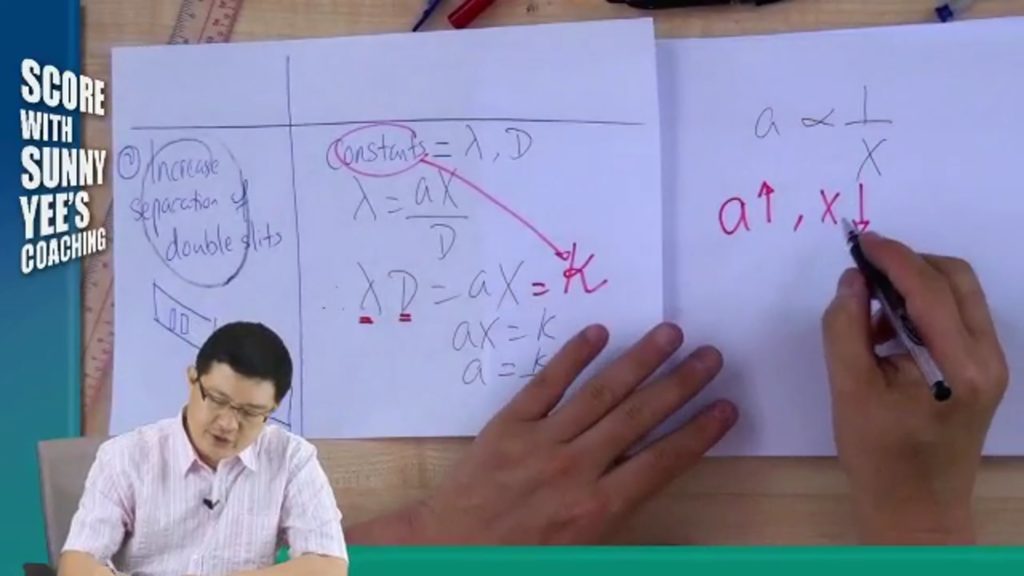 SCORE
WITH
SUNNY
YEE'S
COACHING
② Increase
separation of
double slits
Constants = λ, D
λ = aX/D
∴ λD = aX = K
ax = k
a = k
a ∝ 1/X
a↑, x↓